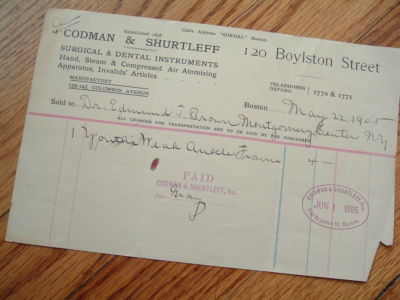 Established 1838
Cable Address "SURDAL" Boston.
CODMAN & SHURTLEFF
120 Boylston Street
SURGICAL & DENTAL INSTRUMENTS
Hand, Steam & Compressed Air Atomizing
Apparatus, Invalids' Articles
TELEPHONES
OXFORD 1770 & 1771
MANUFACTORY
COLUMBUS AVENUE
Boston May 22, 1905
Sold to Dr. Edmund J. Brown Montgomery Center
ALL CHARGES FOR TRANSPORTATION ARE TO BE PAID BY THE PURCHASER
1 Youth's Weak Ankle Frame 4 -
PAID
CODMAN & SHURTLEFF, Inc.
Per Gray
CODMAN & SHURTLEFF, Inc.
JUN 1 1905
120 Boylston St. Boston.